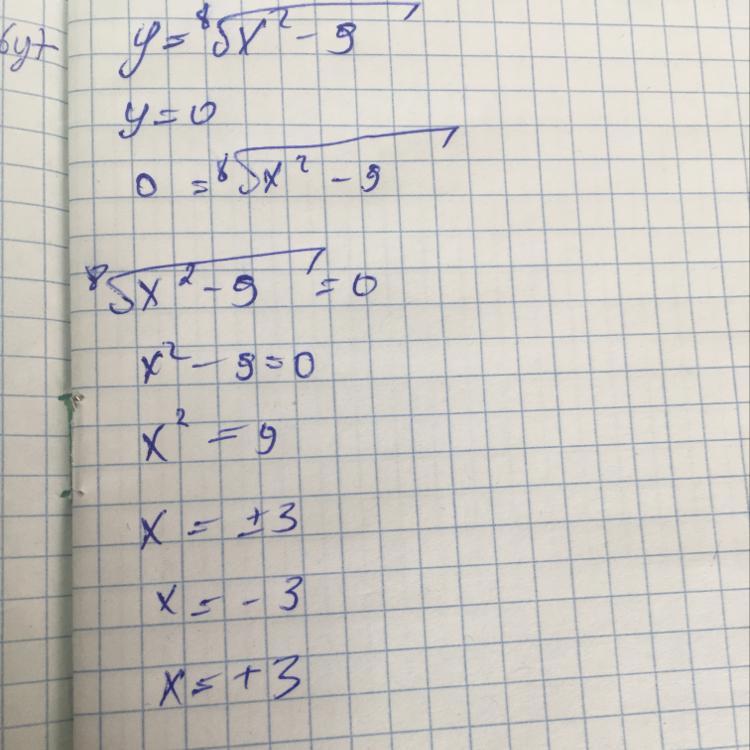 y = ⁸√x² - 9
y = 0
0 = ⁸√x² - 9
⁸√x² - 9 = 0
x² - 9 = 0
x² = 9
x = ±3
x = - 3
x = + 3